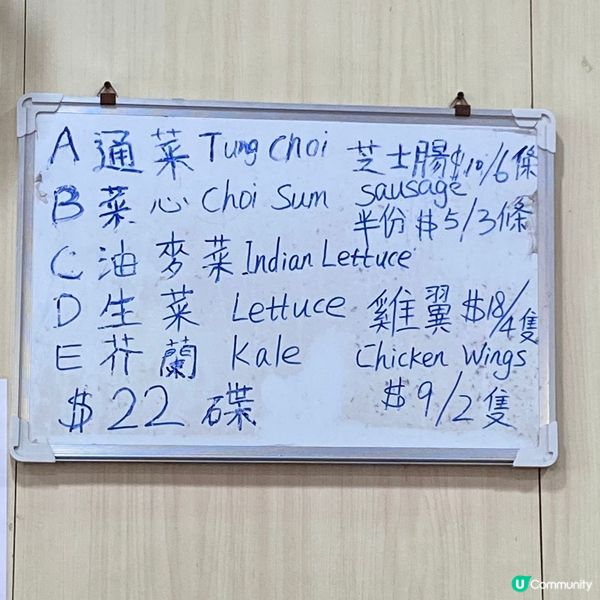 A 通菜 Tung Choi
B 菜心 Choi Sum
C 油麥菜 Indian Lettuce
D 生菜 Lettuce
E 芥蘭 Kale
$22 碟
芝士腸 $10/6條
sausage
半份 $5/3條
雞翼 $18/4隻
Chicken Wings
$9/2隻
U Community